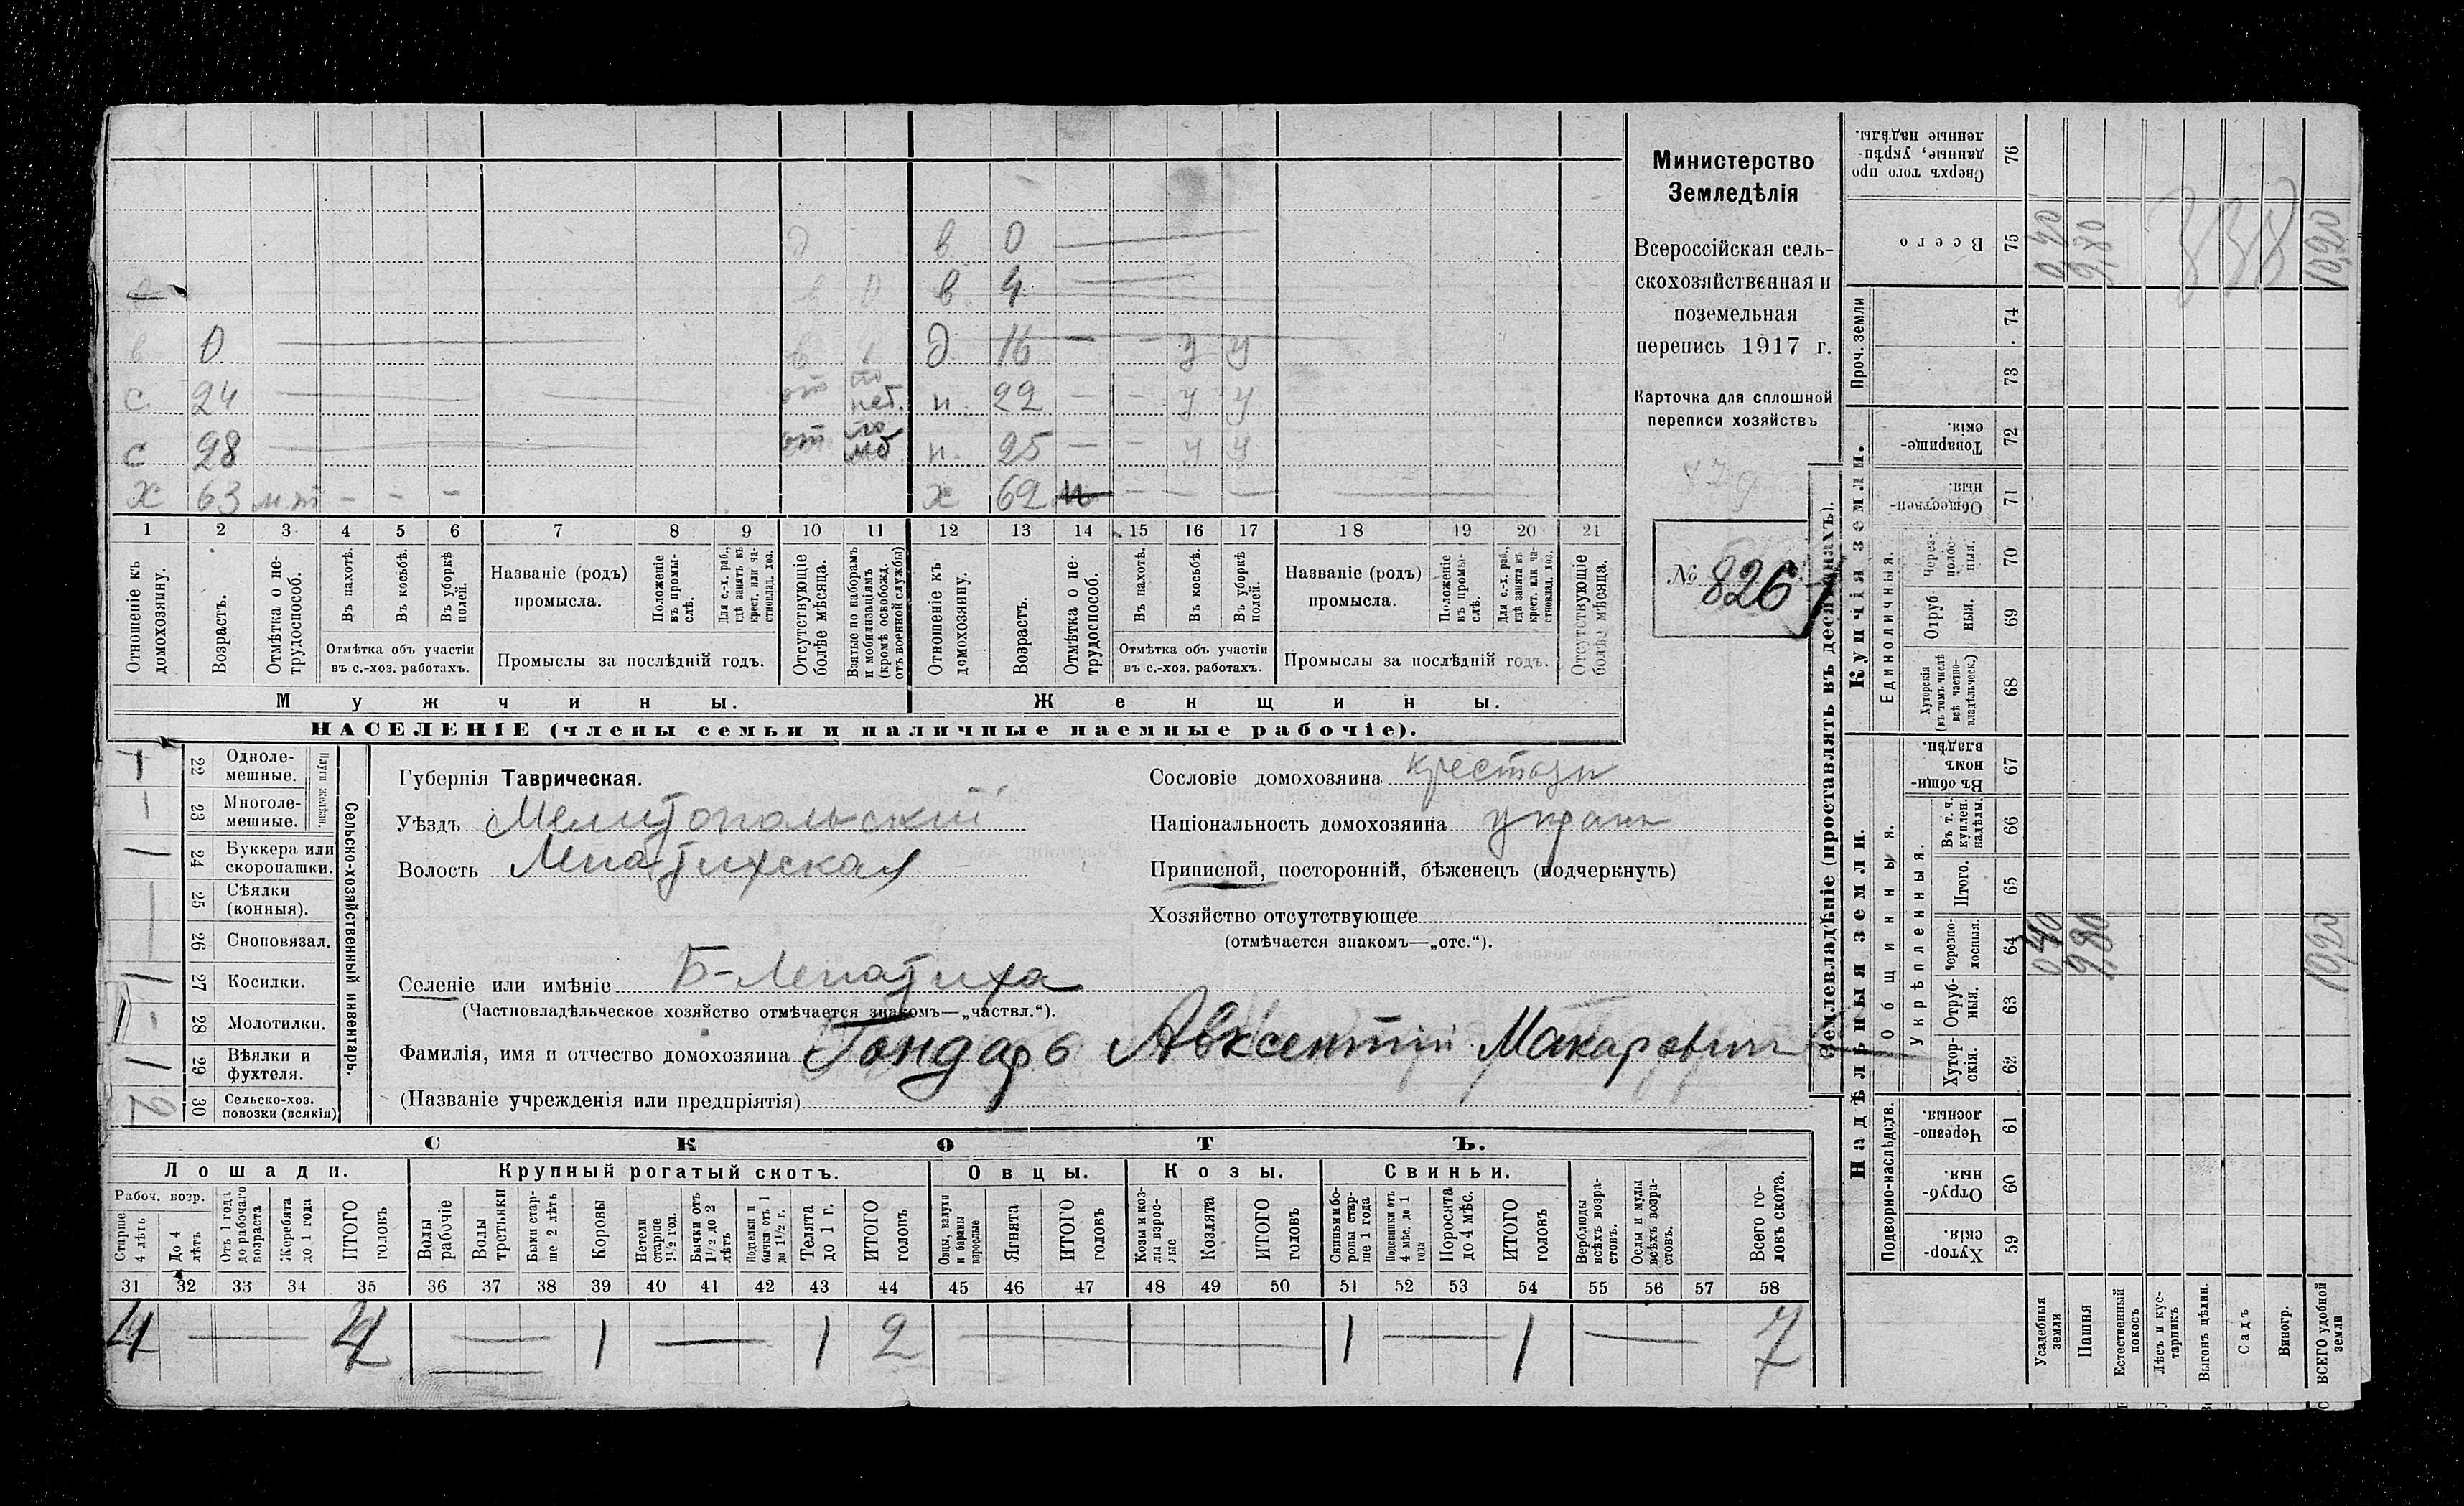 д в 0
в 4
в 0 д 16 — — у у
с 24 от по наб. н. 22 — — у у
с 28 от по моб н. 25 — — у у
х 63 н.т — — — х 62 н — — —
1 2 3 4 5 6 7 8 9 10 11 12 13 14 15 16 17 18 19 20 21
Отношеніе къ домохозяину.
Возрастъ.
Отмѣтка о нетрудоспособ.
Въ пахотѣ.
Въ косьбѣ.
Въ уборкѣ полей.
Отмѣтка объ участіи въ с.-хоз. работахъ.
Названіе (родъ) промысла.
Положеніе въ промыслѣ.
Для с.-х. раб., гдѣ занятъ въ крест. или частновлад. хоз.
Промыслы за послѣдній годъ.
Отсутствующіе болѣе мѣсяца.
Взятые по наборамъ и мобилизаціямъ (кромѣ освобожд. отъ военной службы)
Отношеніе къ домохозяину.
Возрастъ.
Отмѣтка о нетрудоспособ.
Въ пахотѣ.
Въ косьбѣ.
Въ уборкѣ полей.
Отмѣтка объ участіи въ с.-хоз. работахъ.
Названіе (родъ) промысла.
Положеніе въ промыслѣ.
Для с.-х. раб., гдѣ занята въ крест. или частновлад. хоз.
Промыслы за послѣдній годъ.
Отсутствующіе болѣе мѣсяца.
Мужчины. Женщины.
НАСЕЛЕНІЕ (члены семьи и наличные наемные рабочіе).
Министерство
Земледѣлія
Всероссійская сель-
скохозяйственная и
поземельная
перепись 1917 г.
Карточка для сплошной
переписи хозяйствъ
№ 826
Сельско-хозяйственный инвентарь.
Плуги желѣзн.
1 22 Однолемешные.
— 23 Многолемешные.
1 24 Буккера или скоропашки.
— 25 Сѣялки (конныя).
— 26 Сноповязал.
1 27 Косилки.
— 28 Молотилки.
1 29 Вѣялки и фухтеля.
2 30 Сельско-хоз. повозки (всякія)
Губернія Таврическая.
Уѣздъ Мелитопольскій
Волость Лепатихская
Сословіе домохозяина крестьян
Національность домохозяина украин
Приписной, посторонній, бѣженецъ (подчеркнуть)
Хозяйство отсутствующее
(отмѣчается знакомъ—„отс.“).
Селеніе или имѣніе Б-Лепатиха
(Частновладѣльческое хозяйство отмѣчается знакомъ—„частвл.“).
Фамилія, имя и отчество домохозяина Гондарь Авксентій Макарович
(Названіе учрежденія или предпріятія)
СКОТЪ.
Лошади. Крупный рогатый скотъ. Овцы. Козы. Свиньи.
Рабоч. возр.
Старше 4 лѣтъ
До 4 лѣтъ
Отъ 1 года до рабочаго возраста
Жеребята до 1 года
ИТОГО головъ
Волы рабочіе
Волы третьяки
Быки старше 2 лѣтъ
Коровы
Нетели старше 1½ год.
Бычки отъ 1½ до 2 лѣтъ
Нодтелки и бычки отъ 1 до 1½ г.
Телята до 1 г.
ИТОГО головъ
Овцы, валухи и бараны взрослые
Ягнята
ИТОГО головъ
Козы и козлы взрослые
Козлята
ИТОГО головъ
Свиньи и боровы старше 1 года
Подсвинки отъ 4 мѣс. до 1 года
Поросята до 4 мѣс.
ИТОГО головъ
Верблюды всѣхъ возрастовъ.
Ослы и мулы всѣхъ возрастовъ.
Всего головъ скота.
31 32 33 34 35 36 37 38 39 40 41 42 43 44 45 46 47 48 49 50 51 52 53 54 55 56 57 58
4 — 4 — 1 — 1 2 — 1 — 1 — 7
Землевладѣніе (проставлять въ десятинахъ).
Купчія земли.
Надѣльныя земли.
Сверхъ того проданные, укрѣпленные надѣлы. 76
Всего 75 0,40 9,80 10,20
Проч. земли 74 73
Товарищескія. 72
Общественныя. 71
Единоличныя.
Черезполосныя. 70
Отрубныя. 69
Хуторскія (въ томъ числѣ всѣ частновладѣльческ.) 68
Общинныя.
Въ общинномъ владѣн. 67
Укрѣпленныя.
Въ т. ч. куплен. надѣлы. 66
Итого. 65
Черезполосныя. 64 0,40 9,80 10,20
Отрубныя. 63
Хуторскія. 62
Подворно-наслѣдств.
Черезполосныя. 61
Отрубныя. 60
Хуторскія. 59
Усадебныя земли
Пашня
Естественный покосъ
Лѣсъ и кустарникъ
Выгонъ цѣлин.
Садъ
Виногр.
ВСЕГО удобной земли